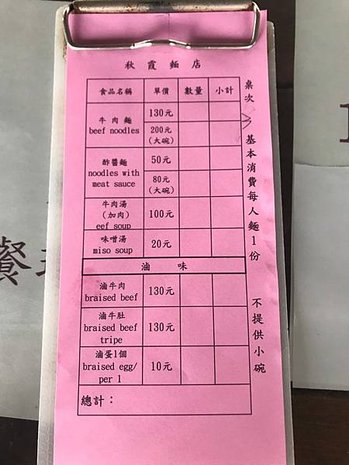 秋霞麵店
食品名稱 單價 數量 小計
牛肉麵 130元
beef noodles 200元
(大碗)
酢醬麵 50元
noodles with 80元
meat sauce (大碗)
牛肉湯
(加肉) 100元
eef soup
味噌湯 20元
miso soup
滷味
滷牛肉 130元
braised beef
滷牛肚 130元
braised beef
tripe
滷蛋1個 10元
braised egg/
per 1
總計：
桌次
基本消費每人麵1份
不提供小碗
餐